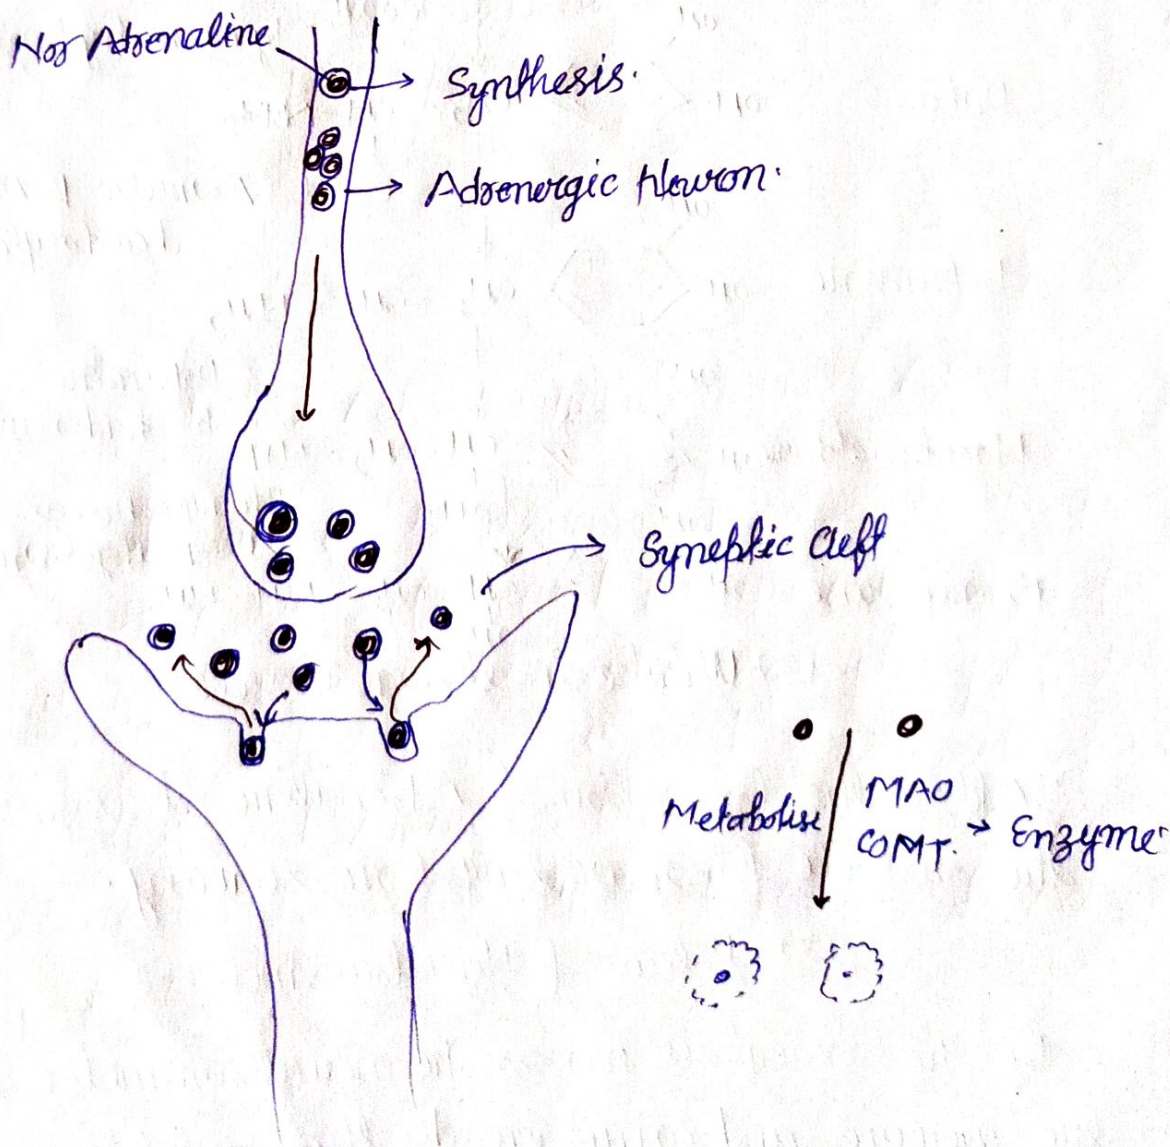 Nor Adrenaline
Synthesis.
Adrenergic Neuron.
Syneptic Cleft
Metabolise
MAO
COMT. → Enzyme